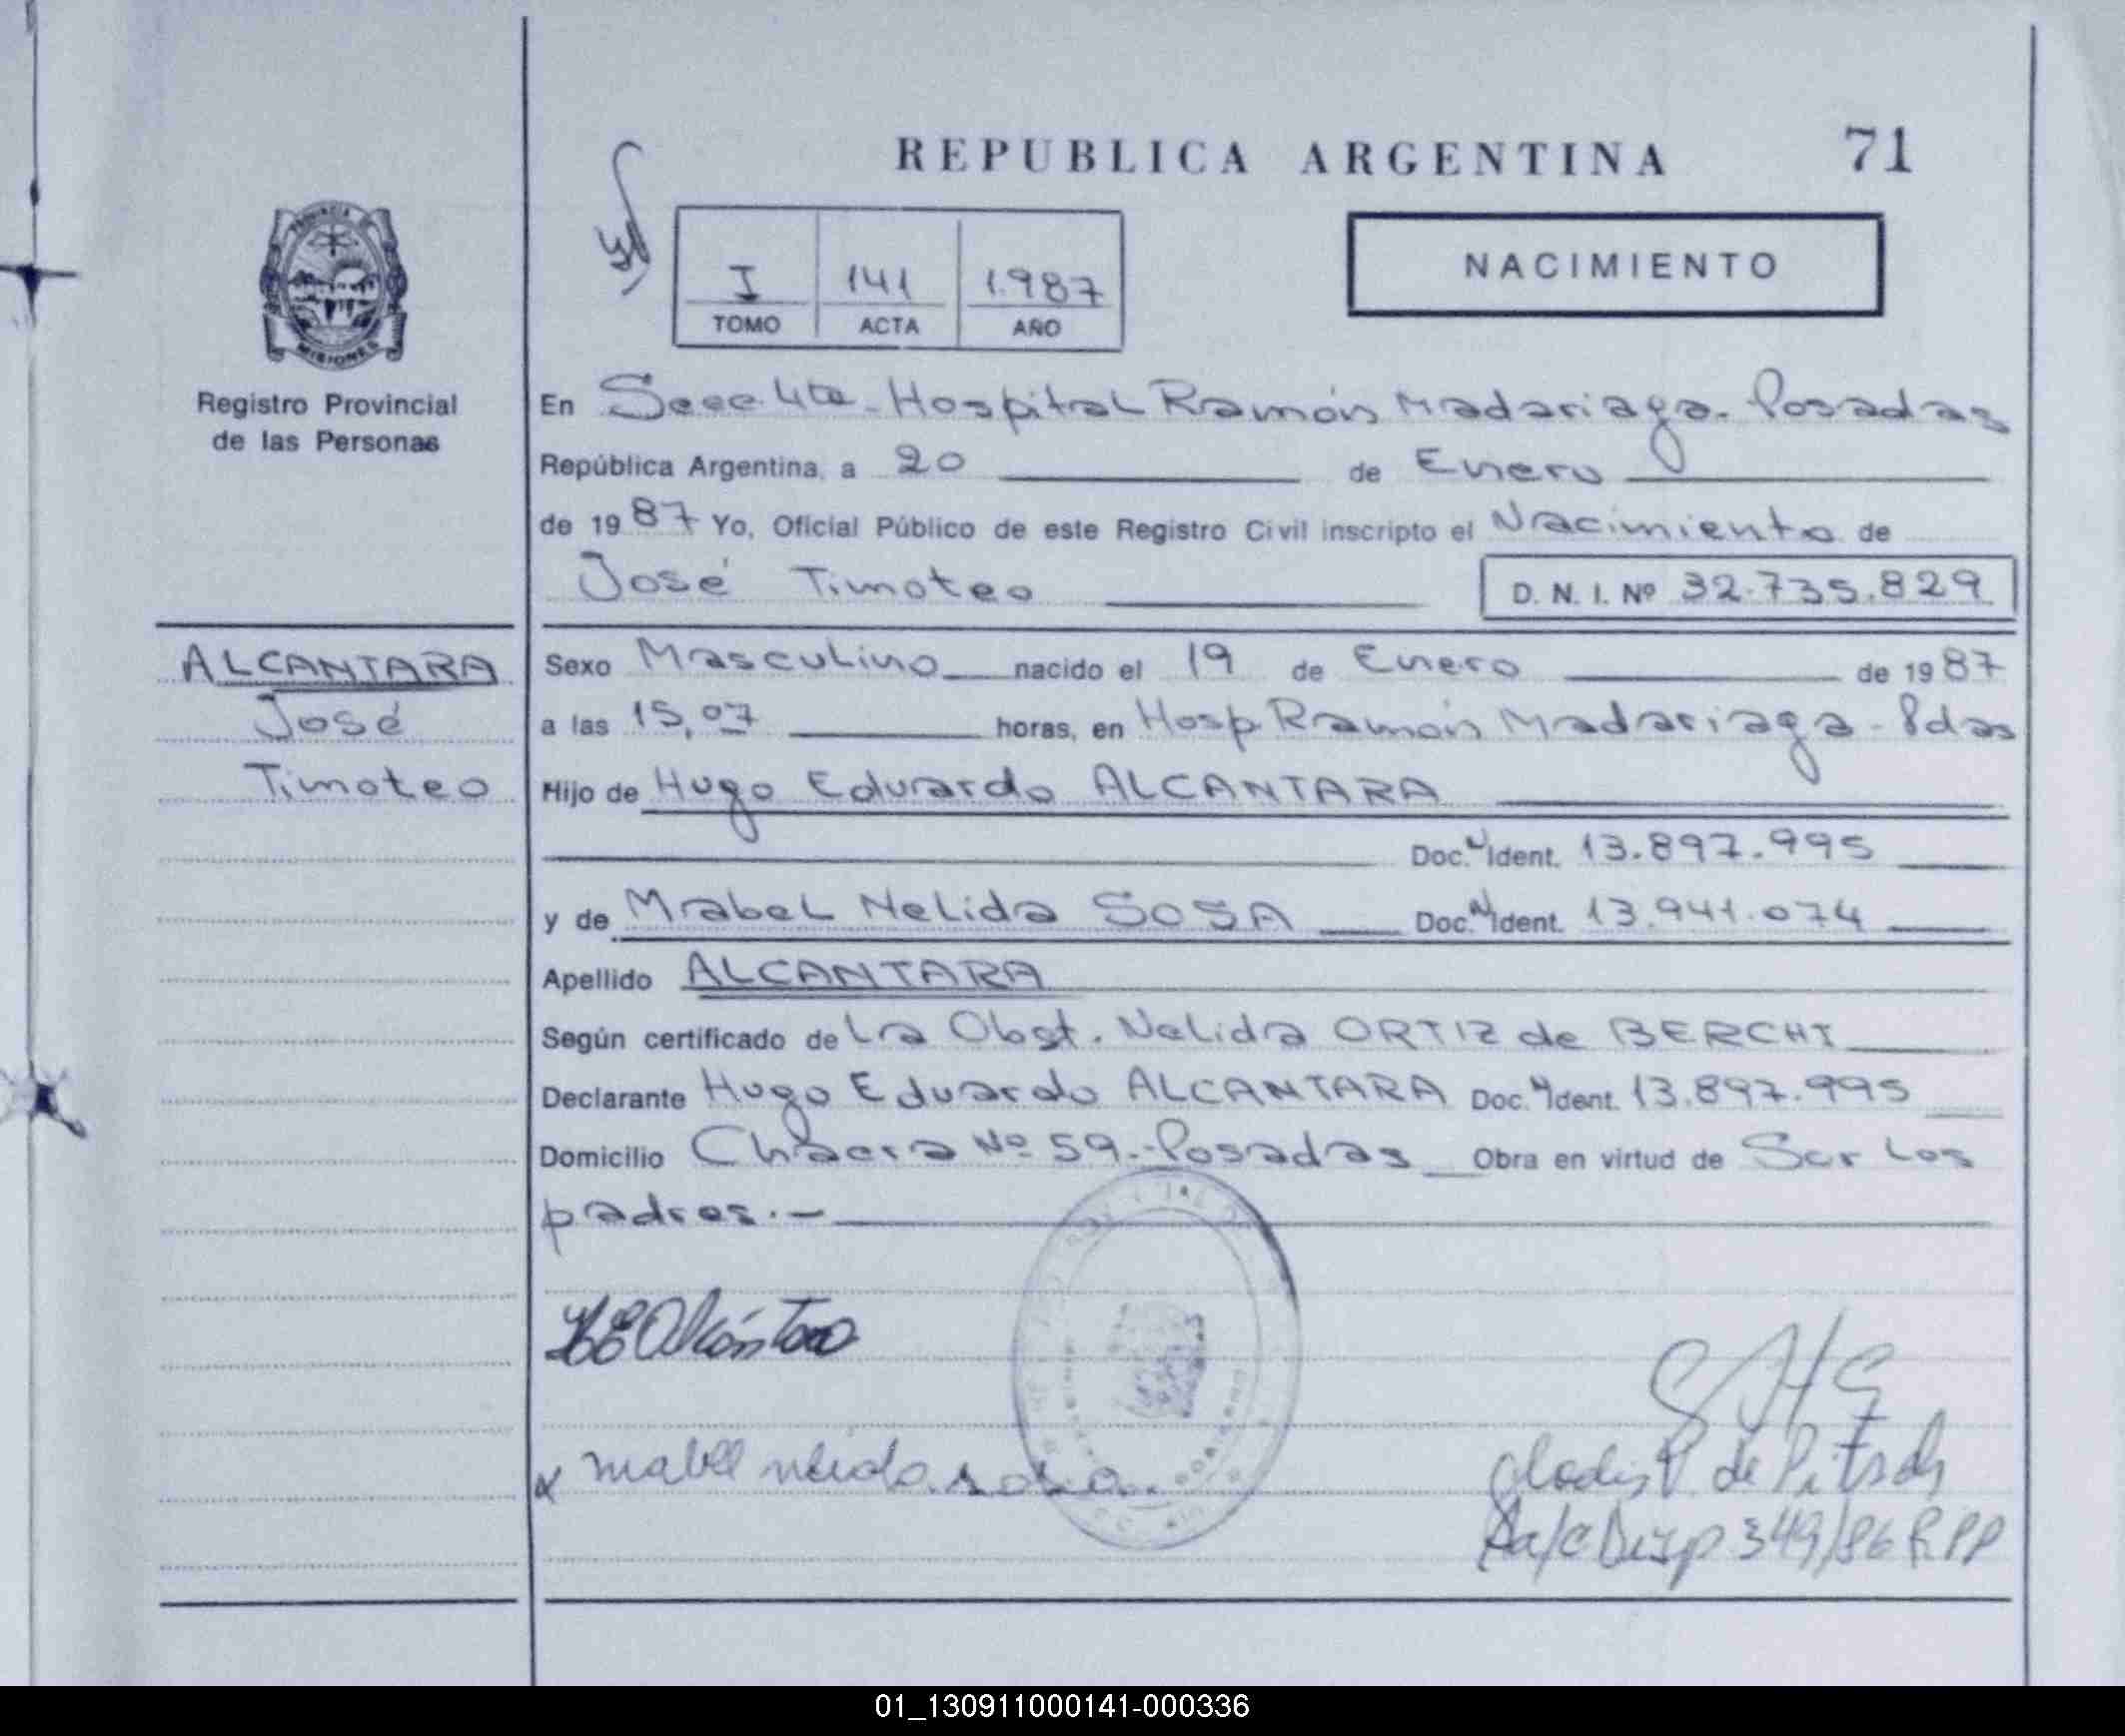 REPUBLICA ARGENTINA 71
I 141 1.987
TOMO ACTA AÑO
NACIMIENTO
PROVINCIA
MISIONES
Registro Provincial
de las Personas
En Secc. 4ta - Hospital Ramón Madariaga. Posadas
República Argentina, a 20 de Enero
de 1987 Yo, Oficial Público de este Registro Civil inscripto el Nacimiento de
José Timoteo D. N. I. Nº 32.735.829
ALCANTARA
José
Timoteo
Sexo Masculino nacido el 19 de Enero de 1987
a las 15,07 horas, en Hosp Ramón Madariaga - Pdas
Hijo de Hugo Eduardo ALCANTARA
Doc. N Ident. 13.897.995
y de Mabel Nelida SOSA Doc. N Ident. 13.941.074
Apellido ALCANTARA
Según certificado de La Obst. Nelida ORTIZ de BERCHI
Declarante Hugo Eduardo ALCANTARA Doc. N Ident. 13.897.995
Domicilio Chacra Nº 59.- Posadas Obra en virtud de Ser los
padres.-
HEAlcántara
x mabel nelida sosa.
Gladis V. de Pitsch
Aa/c Disp 349/86 R.PP
01_130911000141-000336